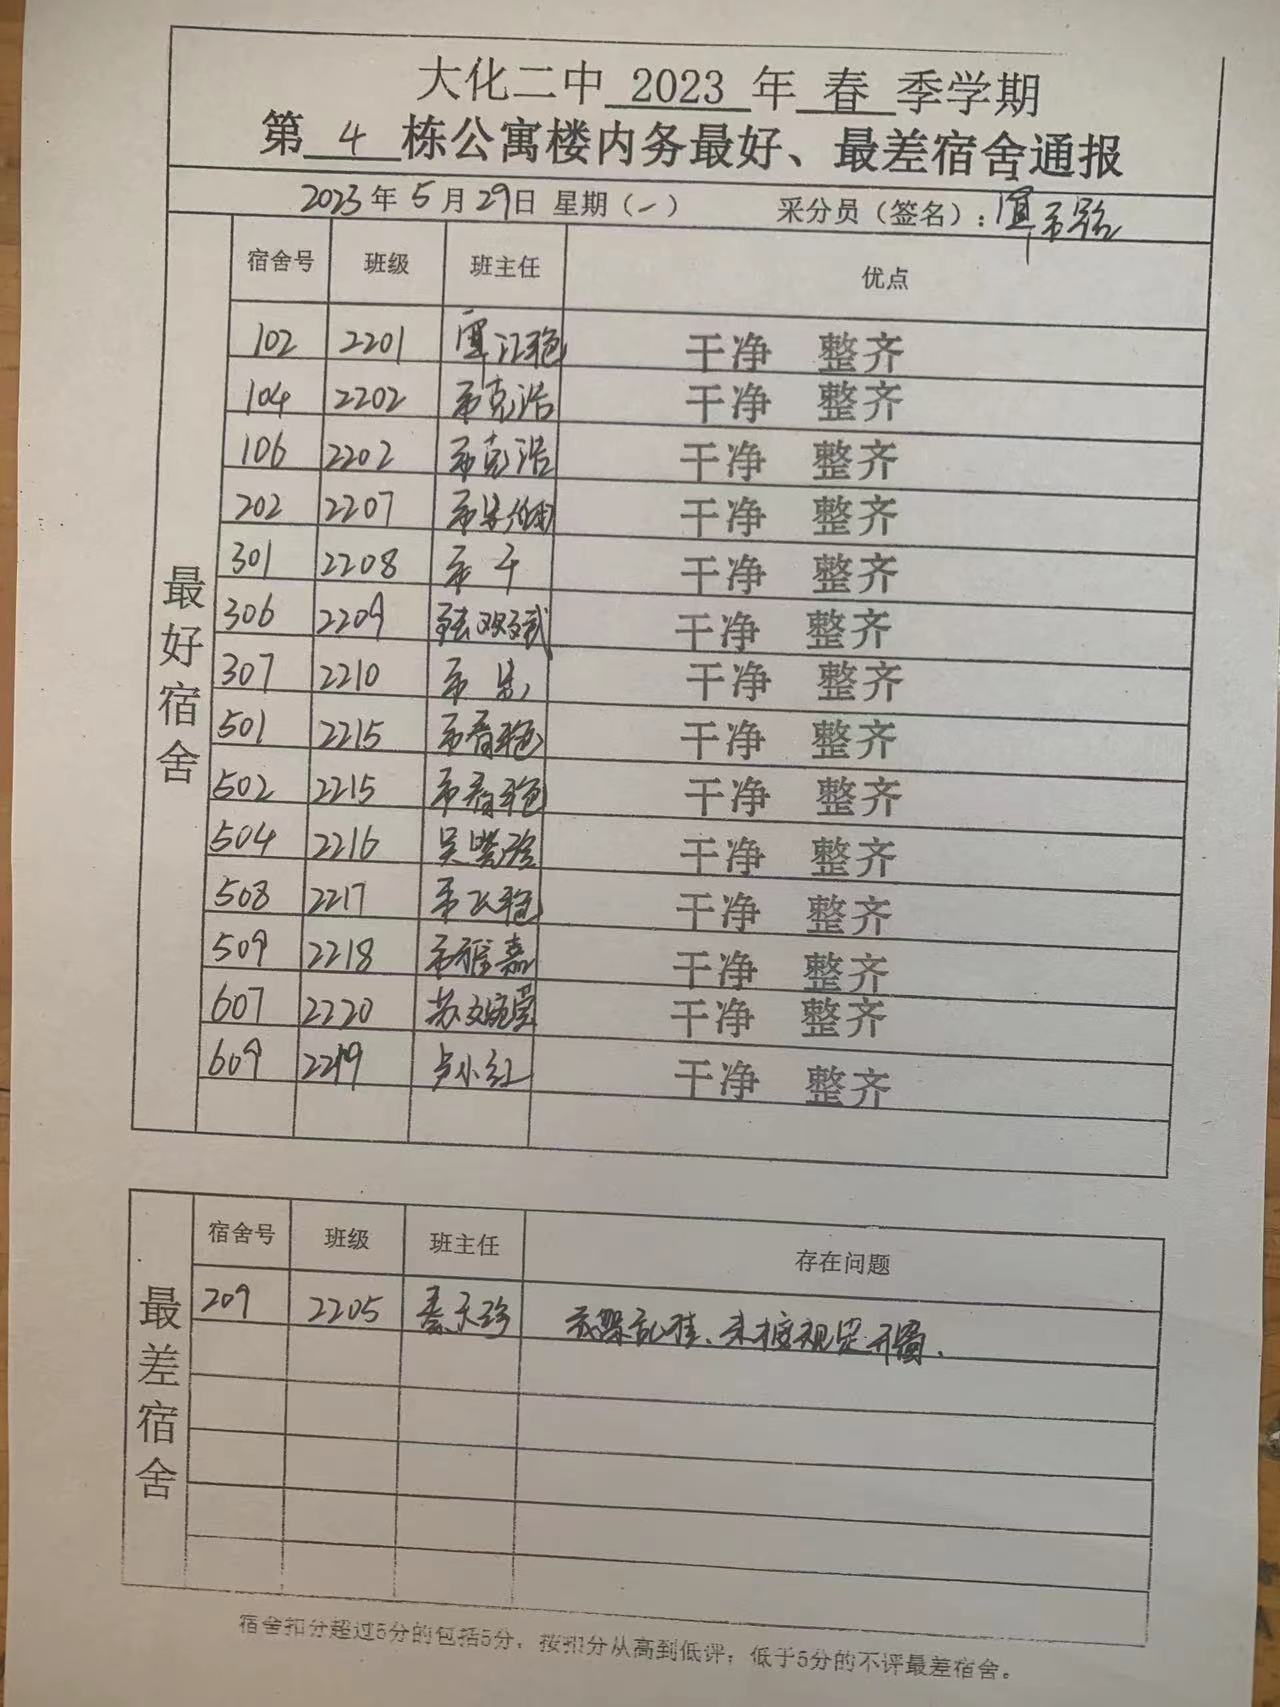 大化二中 2023 年 春 季学期
第 4 栋公寓楼内务最好、最差宿舍通报
2023年5月29日 星期(一) 采分员(签名):
最好宿舍
宿舍号 班级 班主任 优点
102 2201 干净 整齐
104 2202 韦克浩 干净 整齐
106 2202 韦克浩 干净 整齐
202 2207 干净 整齐
301 2208 干净 整齐
306 2209 干净 整齐
307 2210 干净 整齐
501 2215 韦春艳 干净 整齐
502 2215 韦春艳 干净 整齐
504 2216 干净 整齐
508 2217 干净 整齐
509 2218 干净 整齐
607 2220 干净 整齐
609 2219 卢小红 干净 整齐
最差宿舍
宿舍号 班级 班主任 存在问题
209 2205 乱挂、未按规定开窗.
宿舍扣分超过5分的包括5分,按扣分从高到低评;低于5分的不评最差宿舍。